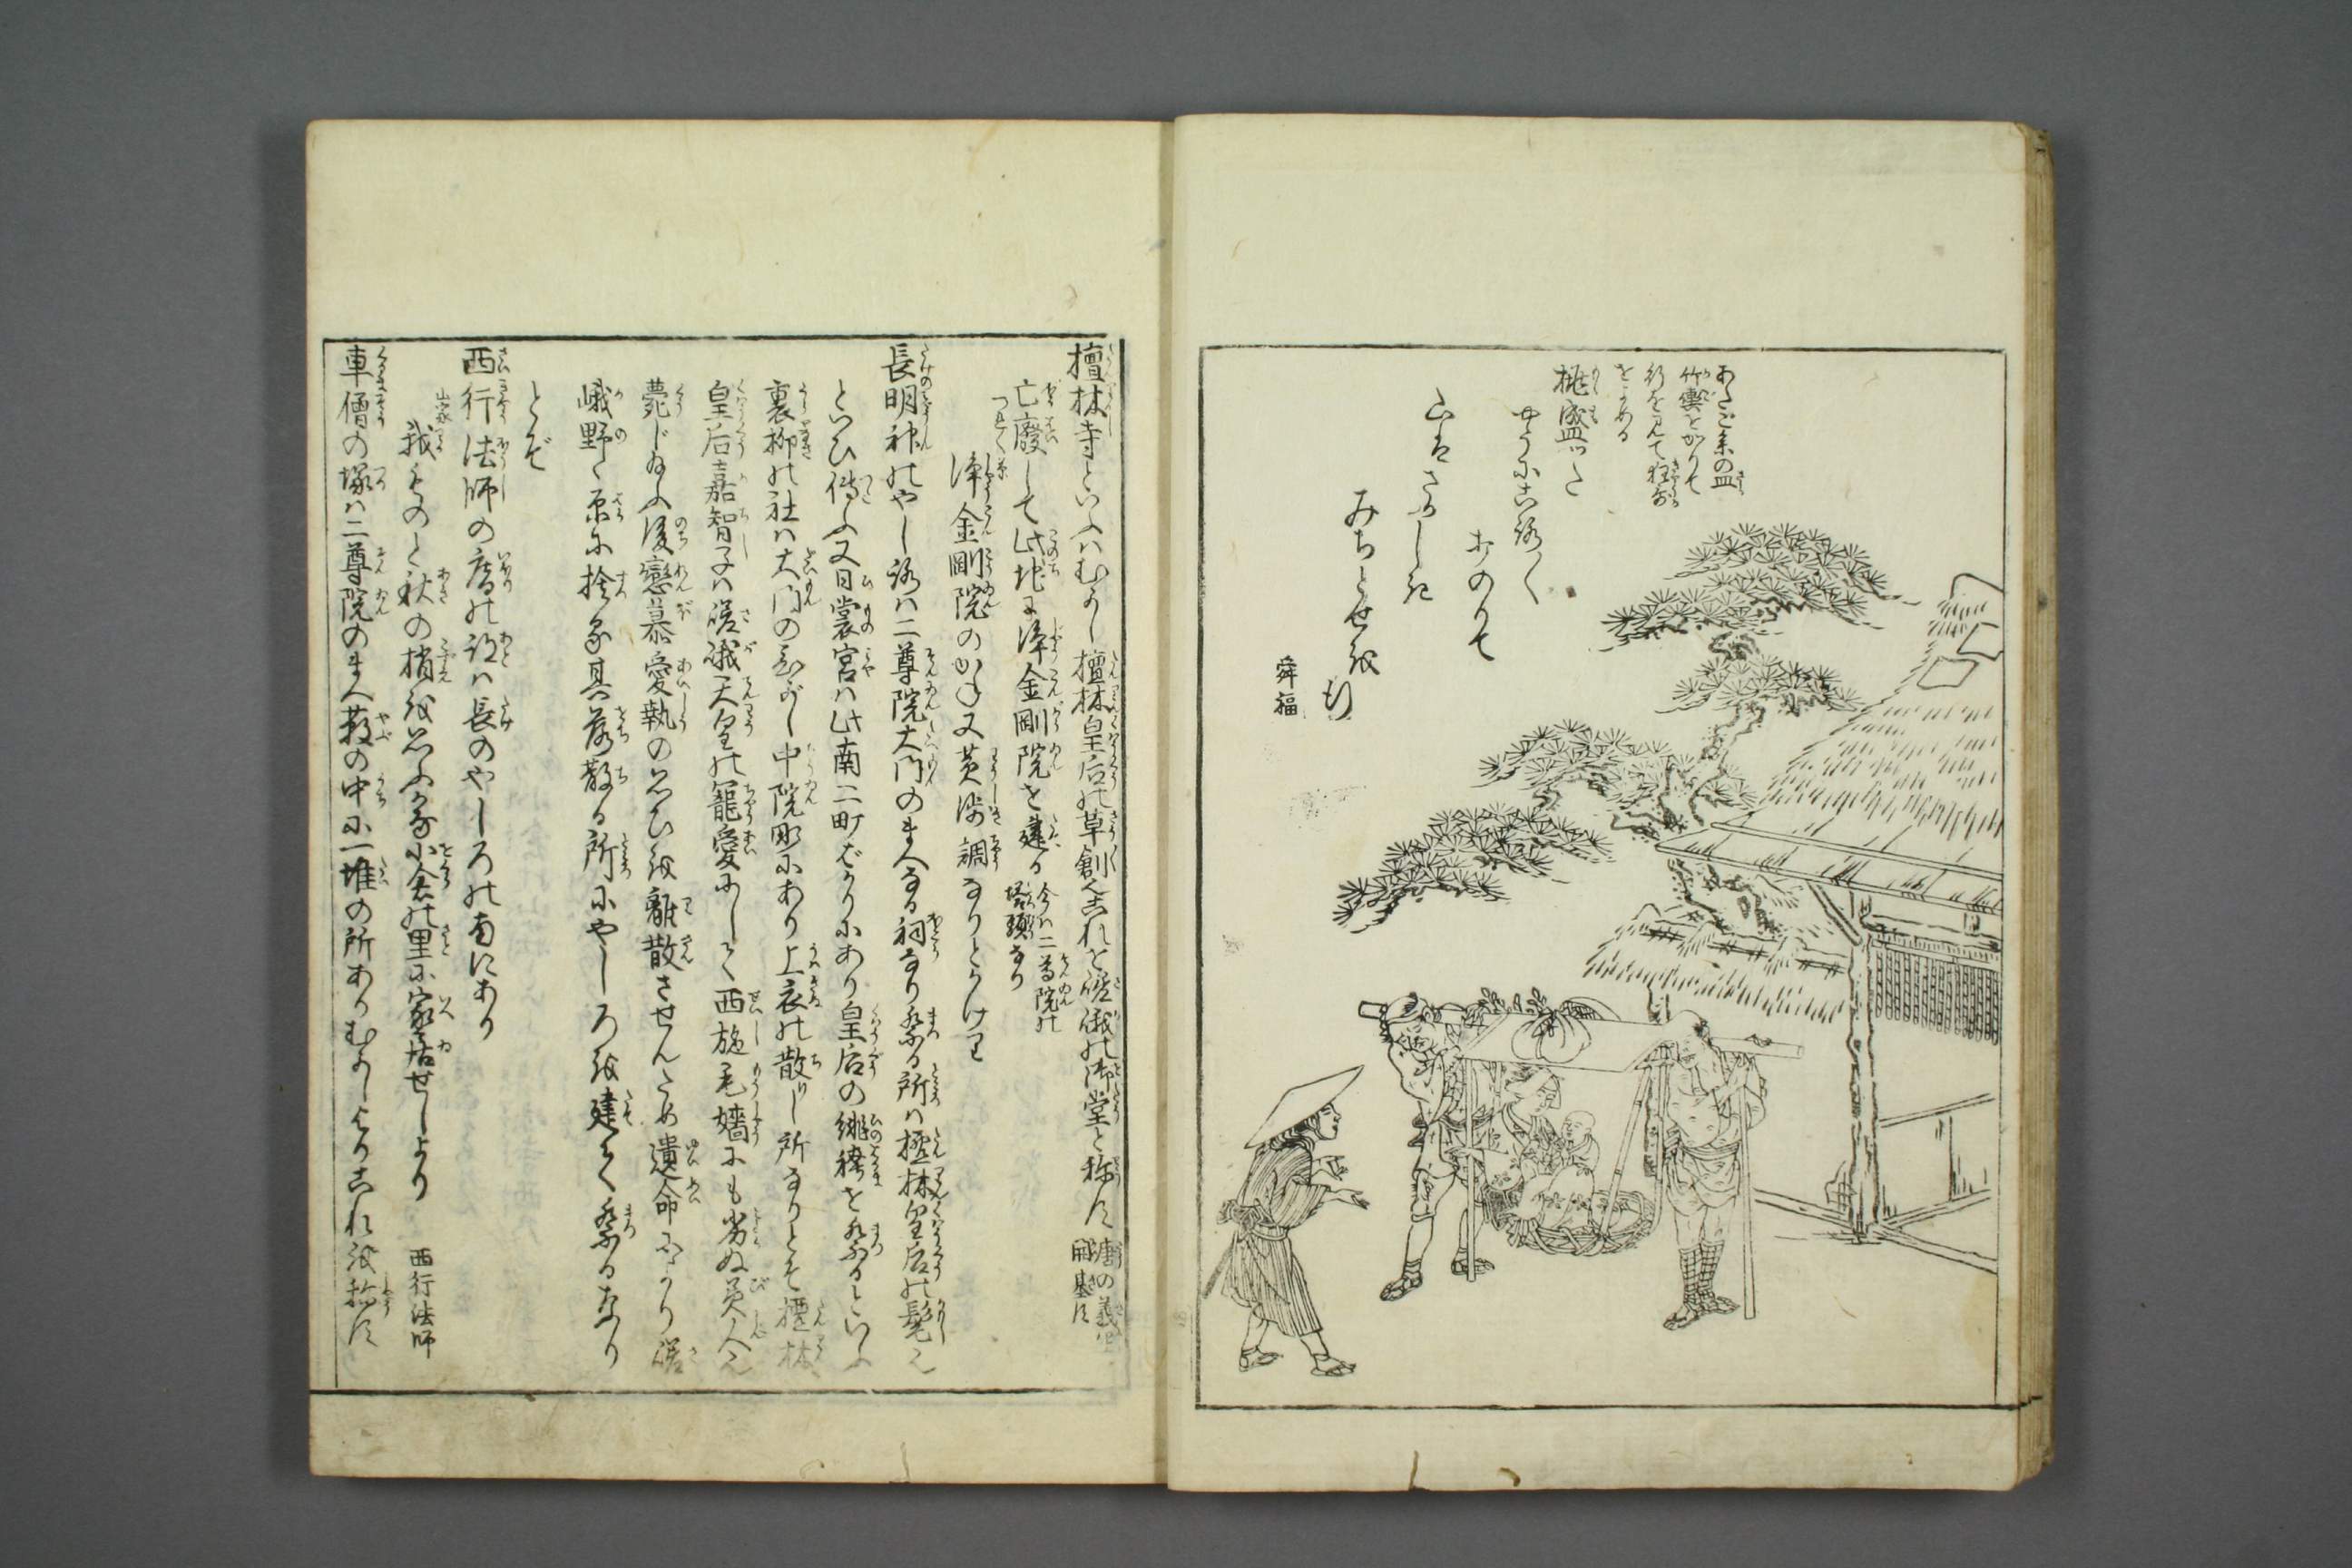 あたご参の皿
竹輿をかりて
行を見て狂哥
をよめる
桃盛いた
山はさかしき
みちとせぞ行
舜福
檀林寺といふはむかし檀林皇后の草創なりこれを嵯峨の御堂と称す唐の義空開基す
亡廃して此地に浄金剛院を建る今は二尊院の塔頭なり
浄金剛院のかね又黄渉調なりとかけり
長明神のやしろは二尊院大門のまへなる祠なり祭る所は檀林皇后の髦也
といひ傳ふ又日裳宮は此南二町ばかりにあり皇后の緋袴を祭るといふ
裏柳の社は大門のひがし中院町にあり上衣の散りし所なりとぞ檀林
皇后嘉智子は嵯峨天皇の寵愛にして西施毛嬙にも劣ぬ美人也
薨じ給ふ後戀慕愛執の思ひを離散させんため遺命によりさ嵯
峨野ゝ原に捨る其落散る所にやしろを建て祭るなり
とぞ
西行法師の庵の跡は長のやしろの南にあり
山家 我ものと秋の梢を思ふかな小倉の里に家居せしより 西行法師
車僧の塚は二尊院のまへ薮の中に一堆の所ありむかしよりこれを称す